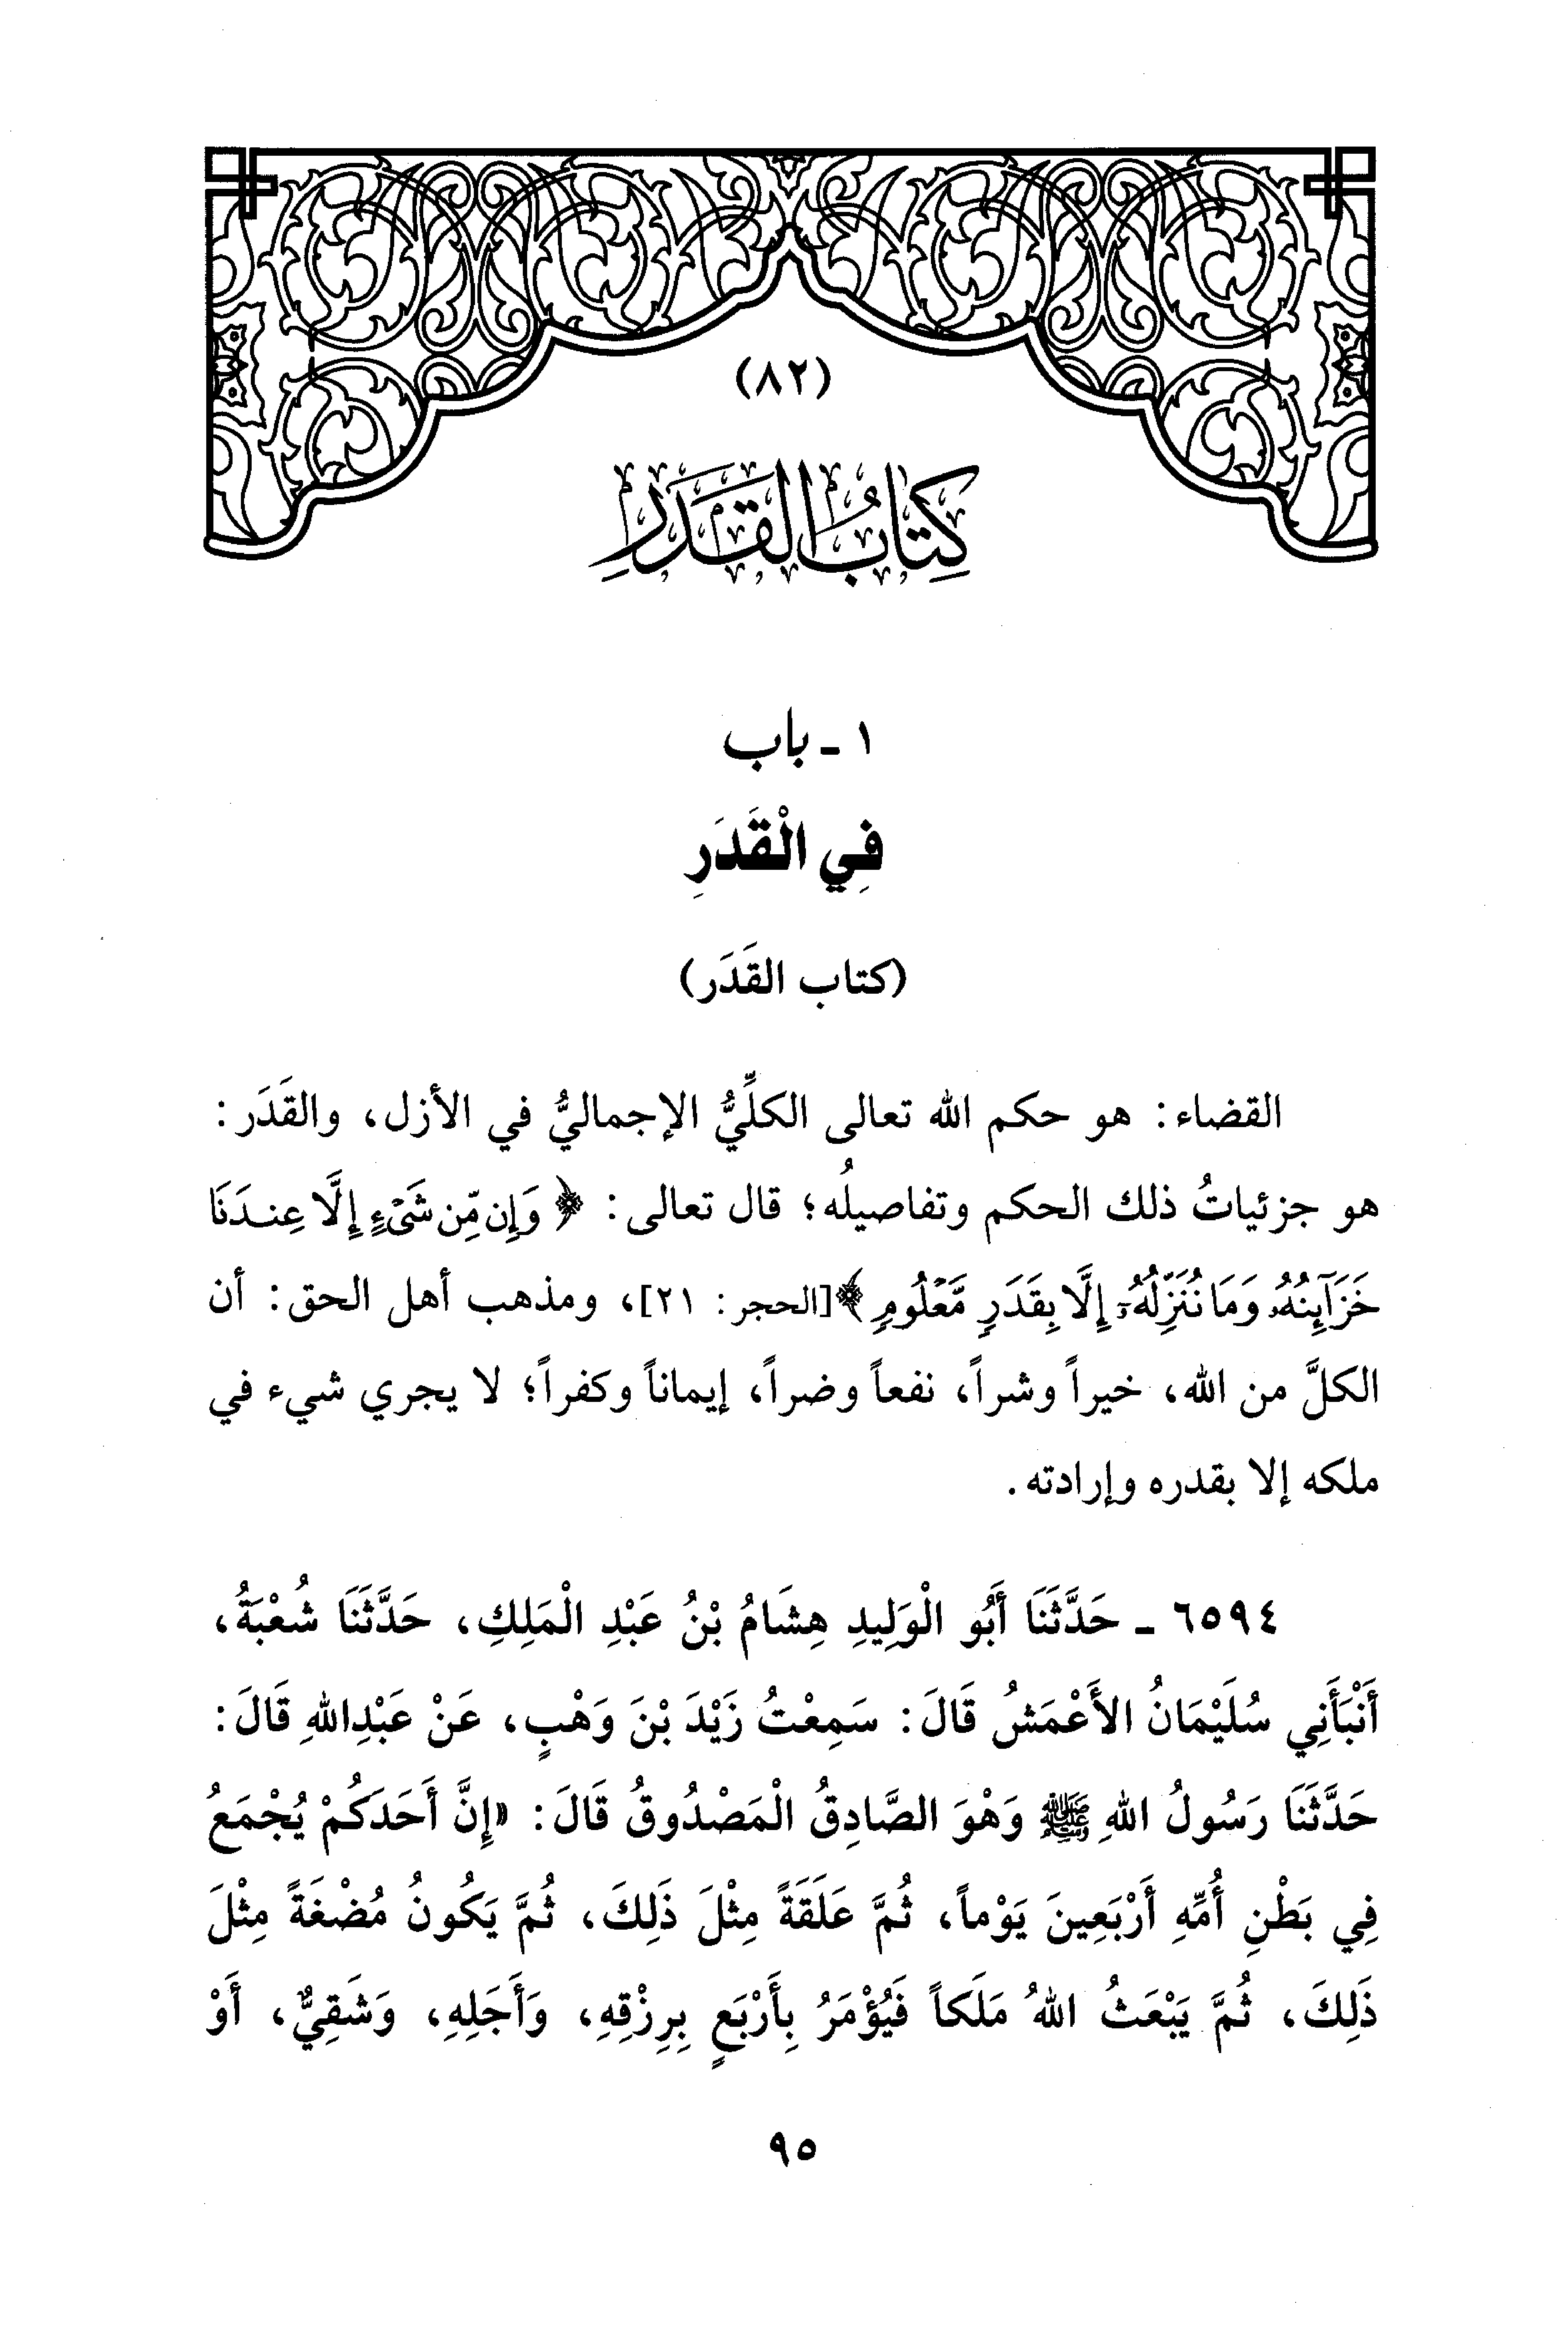 (٨٢)
كِتَابُ القَدَرِ
١ ـ باب
فِي الْقَدَرِ
(كتاب القَدَر)
القضاء: هو حكم الله تعالى الكلِّيُّ الإجماليُّ في الأزل، والقَدَر:
هو جزئياتُ ذلك الحكم وتفاصيلُه؛ قال تعالى: ﴿وَإِن مِّن شَىْءٍ إِلَّا عِندَنَا
خَزَآئِنُهُۥ وَمَا نُنَزِّلُهُۥٓ إِلَّا بِقَدَرٍ مَّعْلُومٍ﴾[الحجر: ٢١]، ومذهب أهل الحق: أن
الكلَّ من الله، خيراً وشراً، نفعاً وضراً، إيماناً وكفراً؛ لا يجري شيء في
ملكه إلا بقدره وإرادته.
٦٥٩٤ ـ حَدَّثَنَا أَبُو الْوَلِيدِ هِشَامُ بْنُ عَبْدِ الْمَلِكِ، حَدَّثَنَا شُعْبَةُ،
أَنْبَأَنِي سُلَيْمَانُ الأَعْمَشُ قَالَ: سَمِعْتُ زَيْدَ بْنَ وَهْبٍ، عَنْ عَبْدِاللهِ قَالَ:
حَدَّثَنَا رَسُولُ اللهِ ﷺ وَهْوَ الصَّادِقُ الْمَصْدُوقُ قَالَ: «إِنَّ أَحَدَكُمْ يُجْمَعُ
فِي بَطْنِ أُمِّهِ أَرْبَعِينَ يَوْماً، ثُمَّ عَلَقَةً مِثْلَ ذَلِكَ، ثُمَّ يَكُونُ مُضْغَةً مِثْلَ
ذَلِكَ، ثُمَّ يَبْعَثُ اللهُ مَلَكاً فَيُؤْمَرُ بِأَرْبَعٍ بِرِزْقِهِ، وَأَجَلِهِ، وَشَقِيٌّ، أَوْ
٩٥